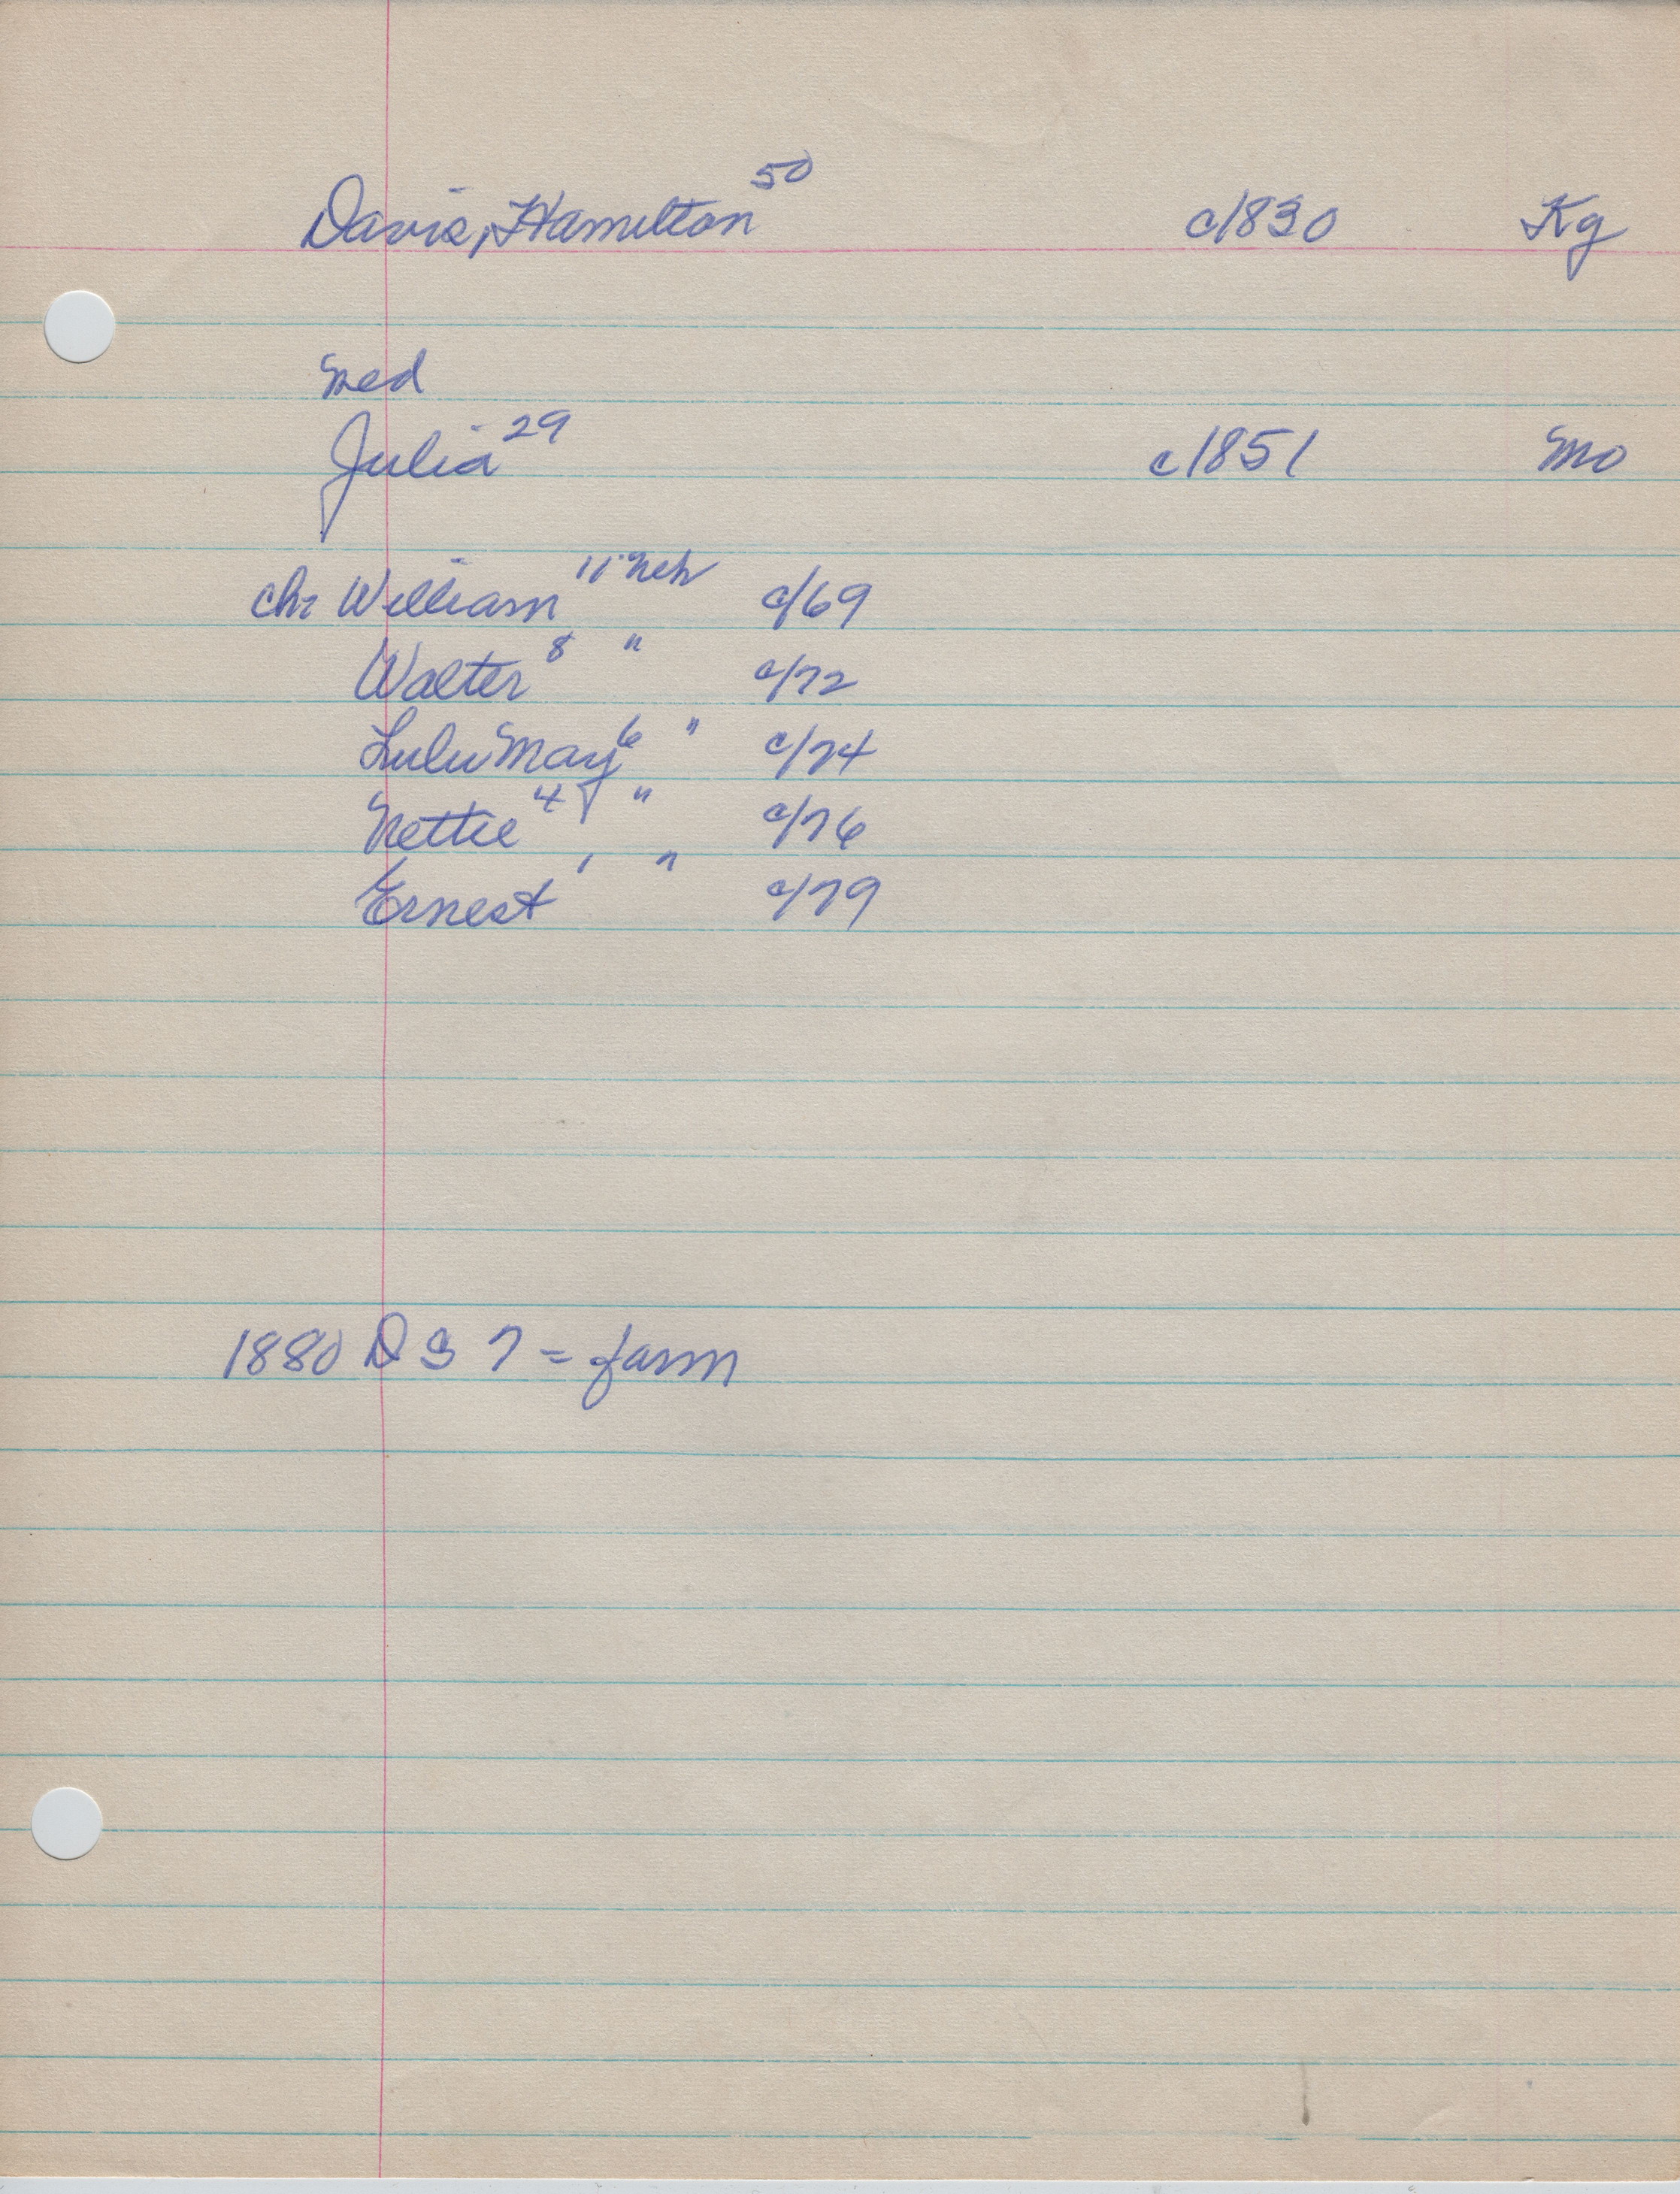 Davis, Hamilton 50 c1830 Ky
med
Julia 29 c1851 Mo
ch: William 11 Neb c/69
Walter 8 " c/72
Lulu May 6 " c/74
Nettie 4 " c/76
Ernest 1 " c/79
1880 D S 7 = farm